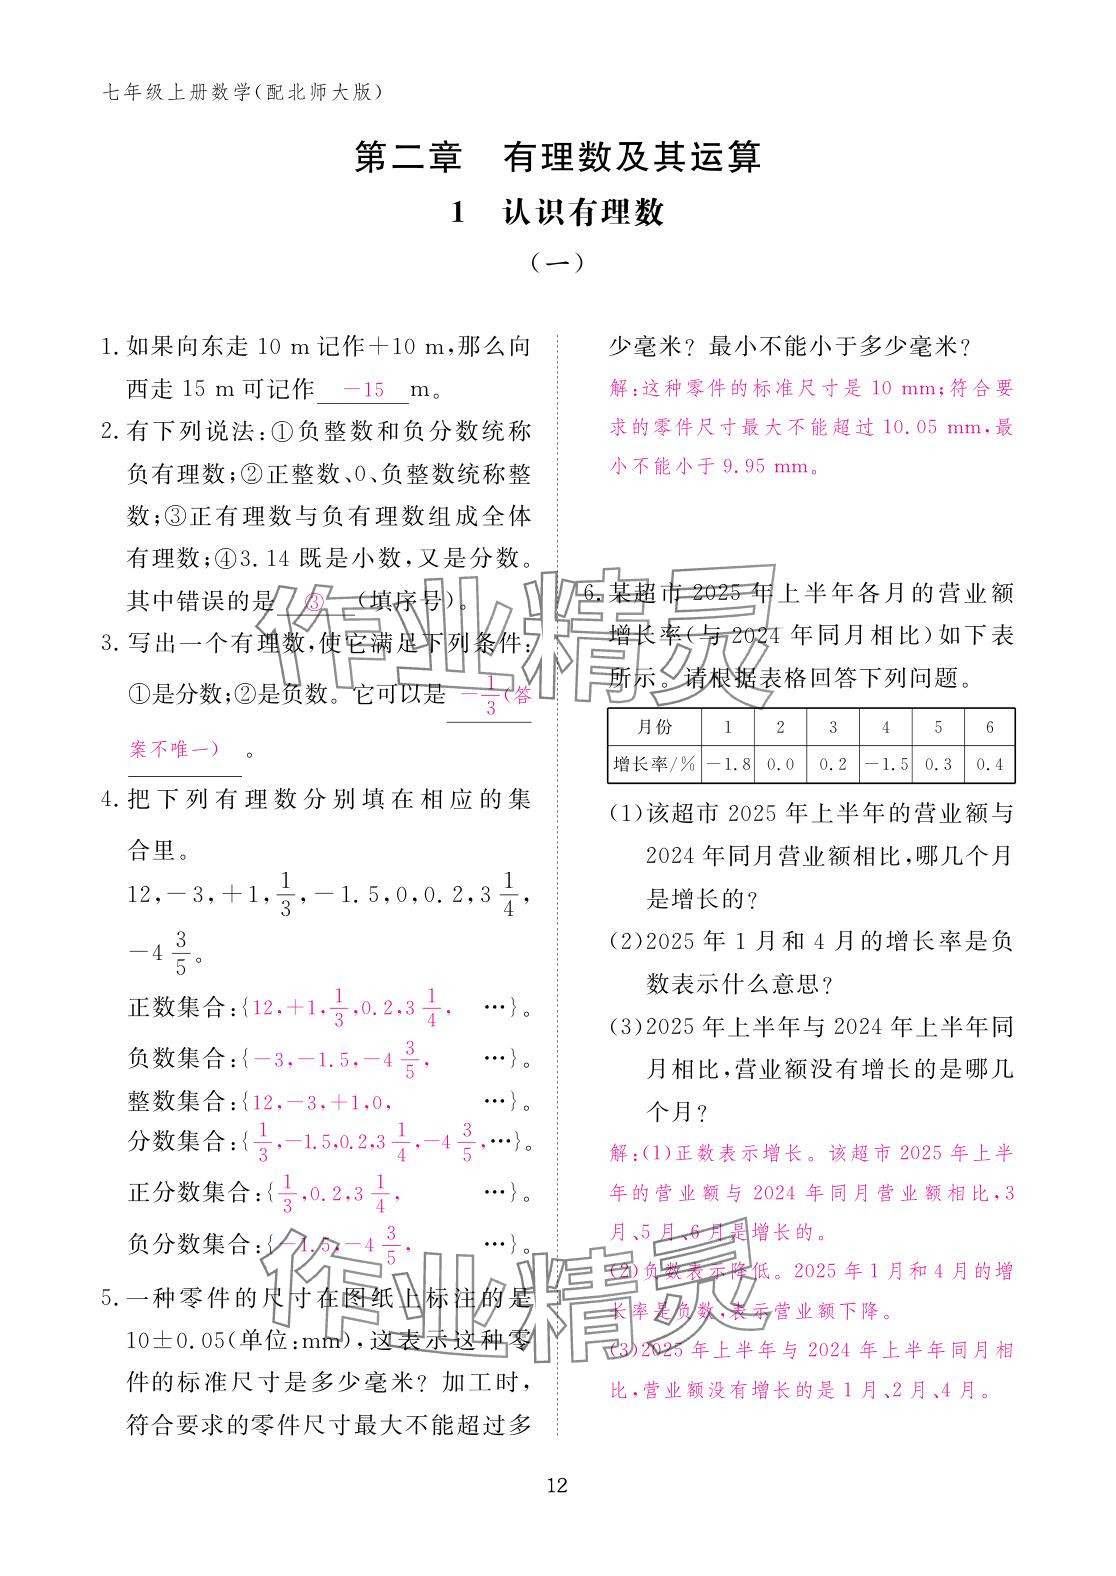 七年级上册数学(配北师大版)
第二章　有理数及其运算
1　认识有理数
(一)
1. 如果向东走 10 m 记作+10 m,那么向
西走 15 m 可记作 −15 m。
2. 有下列说法:①负整数和负分数统称
负有理数;②正整数、0、负整数统称整
数;③正有理数与负有理数组成全体
有理数;④3.14 既是小数,又是分数。
其中错误的是 ③ (填序号)。
3. 写出一个有理数,使它满足下列条件:
①是分数;②是负数。它可以是 −1/3(答
案不唯一) 。
4. 把下列有理数分别填在相应的集
合里。
12,−3,+1,1/3,−1.5,0,0.2,3 1/4,
−4 3/5。
正数集合:{12,+1,1/3,0.2,3 1/4, …}。
负数集合:{−3,−1.5,−4 3/5, …}。
整数集合:{12,−3,+1,0, …}。
分数集合:{1/3,−1.5,0.2,3 1/4,−4 3/5,…}。
正分数集合:{1/3,0.2,3 1/4, …}。
负分数集合:{−1.5,−4 3/5, …}。
5. 一种零件的尺寸在图纸上标注的是
10±0.05(单位:mm),这表示这种零
件的标准尺寸是多少毫米? 加工时,
符合要求的零件尺寸最大不能超过多
少毫米? 最小不能小于多少毫米?
解:这种零件的标准尺寸是 10 mm;符合要
求的零件尺寸最大不能超过 10.05 mm,最
小不能小于 9.95 mm。
6. 某超市 2025 年上半年各月的营业额
增长率(与 2024 年同月相比)如下表
所示。请根据表格回答下列问题。
月份 1 2 3 4 5 6
增长率/% −1.8 0.0 0.2 −1.5 0.3 0.4
(1)该超市 2025 年上半年的营业额与
2024 年同月营业额相比,哪几个月
是增长的?
(2)2025 年 1 月和 4 月的增长率是负
数表示什么意思?
(3)2025 年上半年与 2024 年上半年同
月相比,营业额没有增长的是哪几
个月?
解:(1)正数表示增长。该超市 2025 年上半
年的营业额与 2024 年同月营业额相比,3
月、5 月、6 月是增长的。
(2)负数表示降低。2025 年 1 月和 4 月的增
长率是负数,表示营业额下降。
(3)2025 年上半年与 2024 年上半年同月相
比,营业额没有增长的是 1 月、2 月、4 月。
作业精灵
作业精灵
12